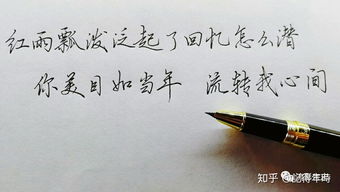 红雨瓢泼泛起了回忆怎么潜
你美目如当年 流转我心间
知乎 @觉得年時